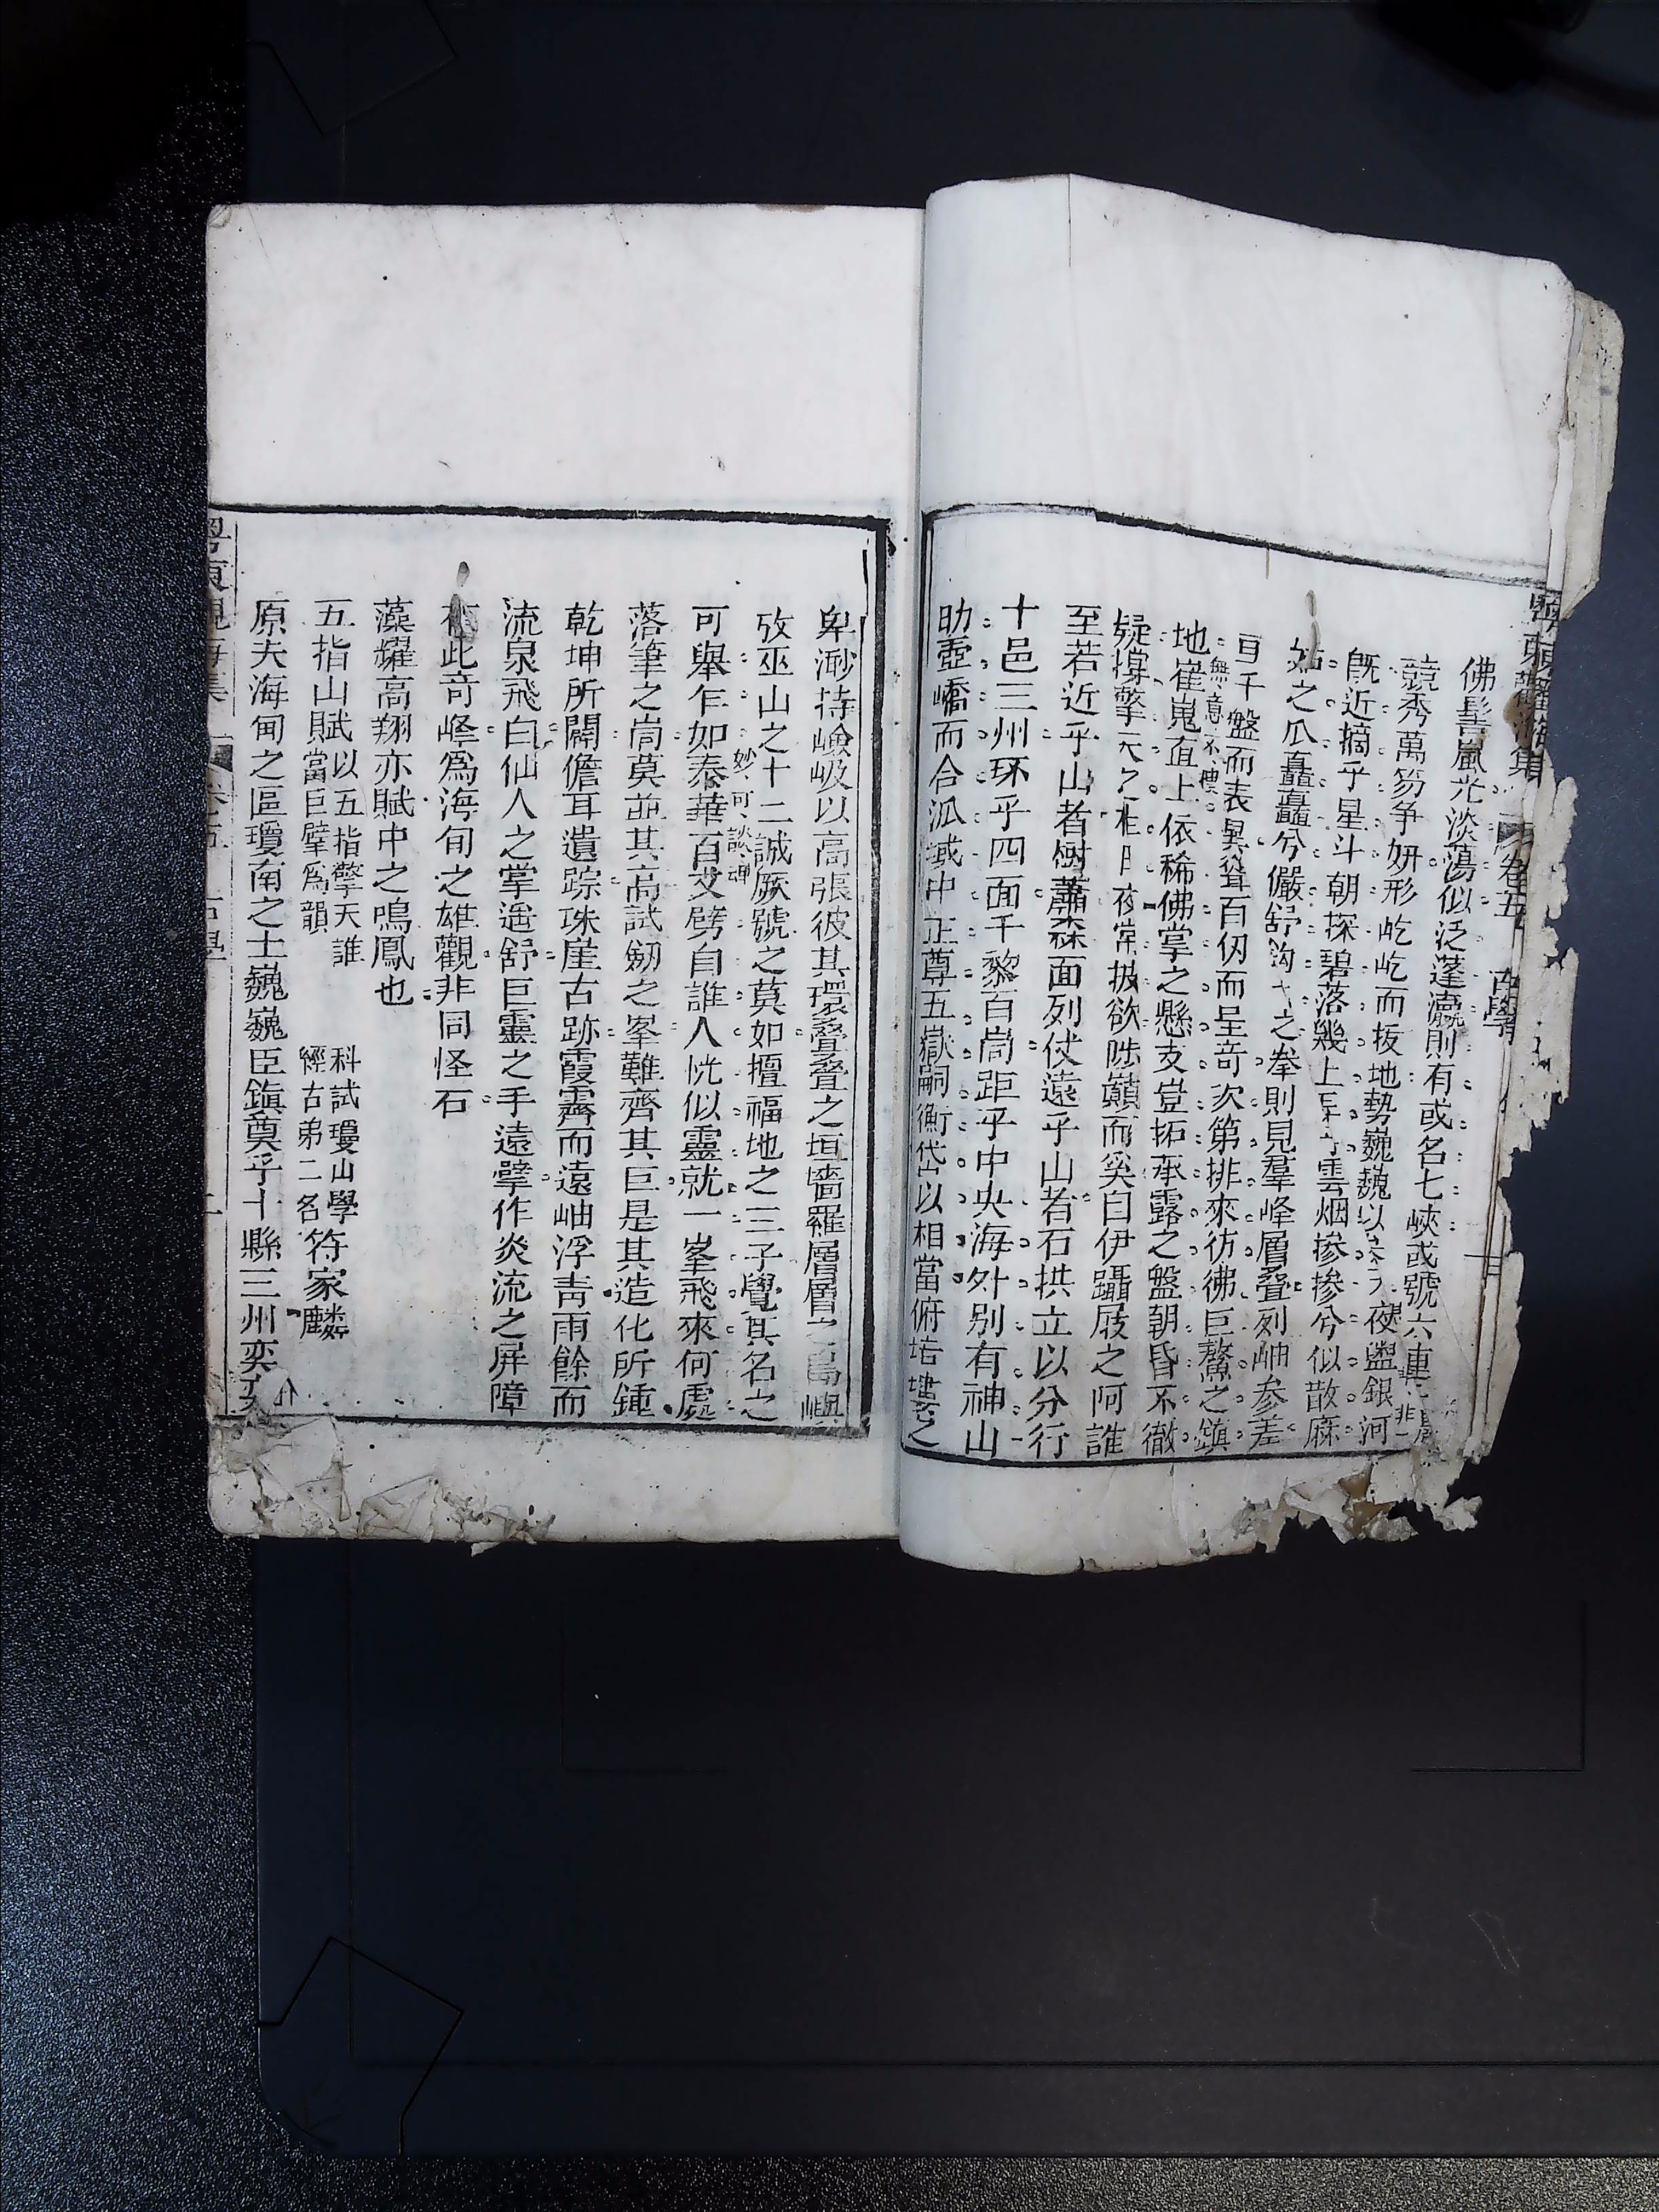 粵東觀海集 卷五 古學
佛髻嵐光淡蕩似泛蓬瀛則有或名七峽或號六連
競秀萬笏爭妍形屹屹而拔地勢巍巍以 夜盥銀河
旣近摘乎星斗朝探碧落幾上 乎雲烟摻摻兮似散麻
姑之瓜矗矗兮儼舒鈎弋之拳則見羣峰層叠列岫參差
亘千盤而表異聳百仞而呈奇次第排來彷彿巨鰲之鎮
無意不禮
地崔嵬直上依稀佛掌之懸支豈拓承露之盤朝昏不徹
疑撐擎天之柱日夜常披欲陟巔而奚自伊躡屐之阿誰
至若近乎山者樹蕭森面列伏遠乎山者石拱立以分行
十邑三州环乎四面千黎百峝距乎中央海外別有神山
助壺嶠而合派域中正尊五嶽嗣衡岱以相當俯培塿之
卑渺持嶮岋以高張彼其環叠叠之垣墻羅層層之島嶼
攷巫山之十二誠厥號之莫如擅福地之三予覺其名之
妙可談禪
可舉乍如泰華百丈劈自誰人恍似靈就一峯飛來何處
落筆之峝莫 其高試劒之峯難齊其巨是其造化所鍾
乾坤所闢儋耳遺踪珠崖古跡霞霽而遠岫浮青雨餘而
流泉飛白仙人之掌遥舒巨靈之手遠擘作炎流之屏障
 此奇峰爲海甸之雄觀非同怪石
藻耀高翔亦賦中之鳴鳳也
五指山賦以五指擎天誰當巨擘爲韻 科試瓊山學經古弟二名符家麟
原夫海甸之區瓊南之土巍巍臣鎮奠乎十縣三州奕奕
粵東觀海集 卷五 古學